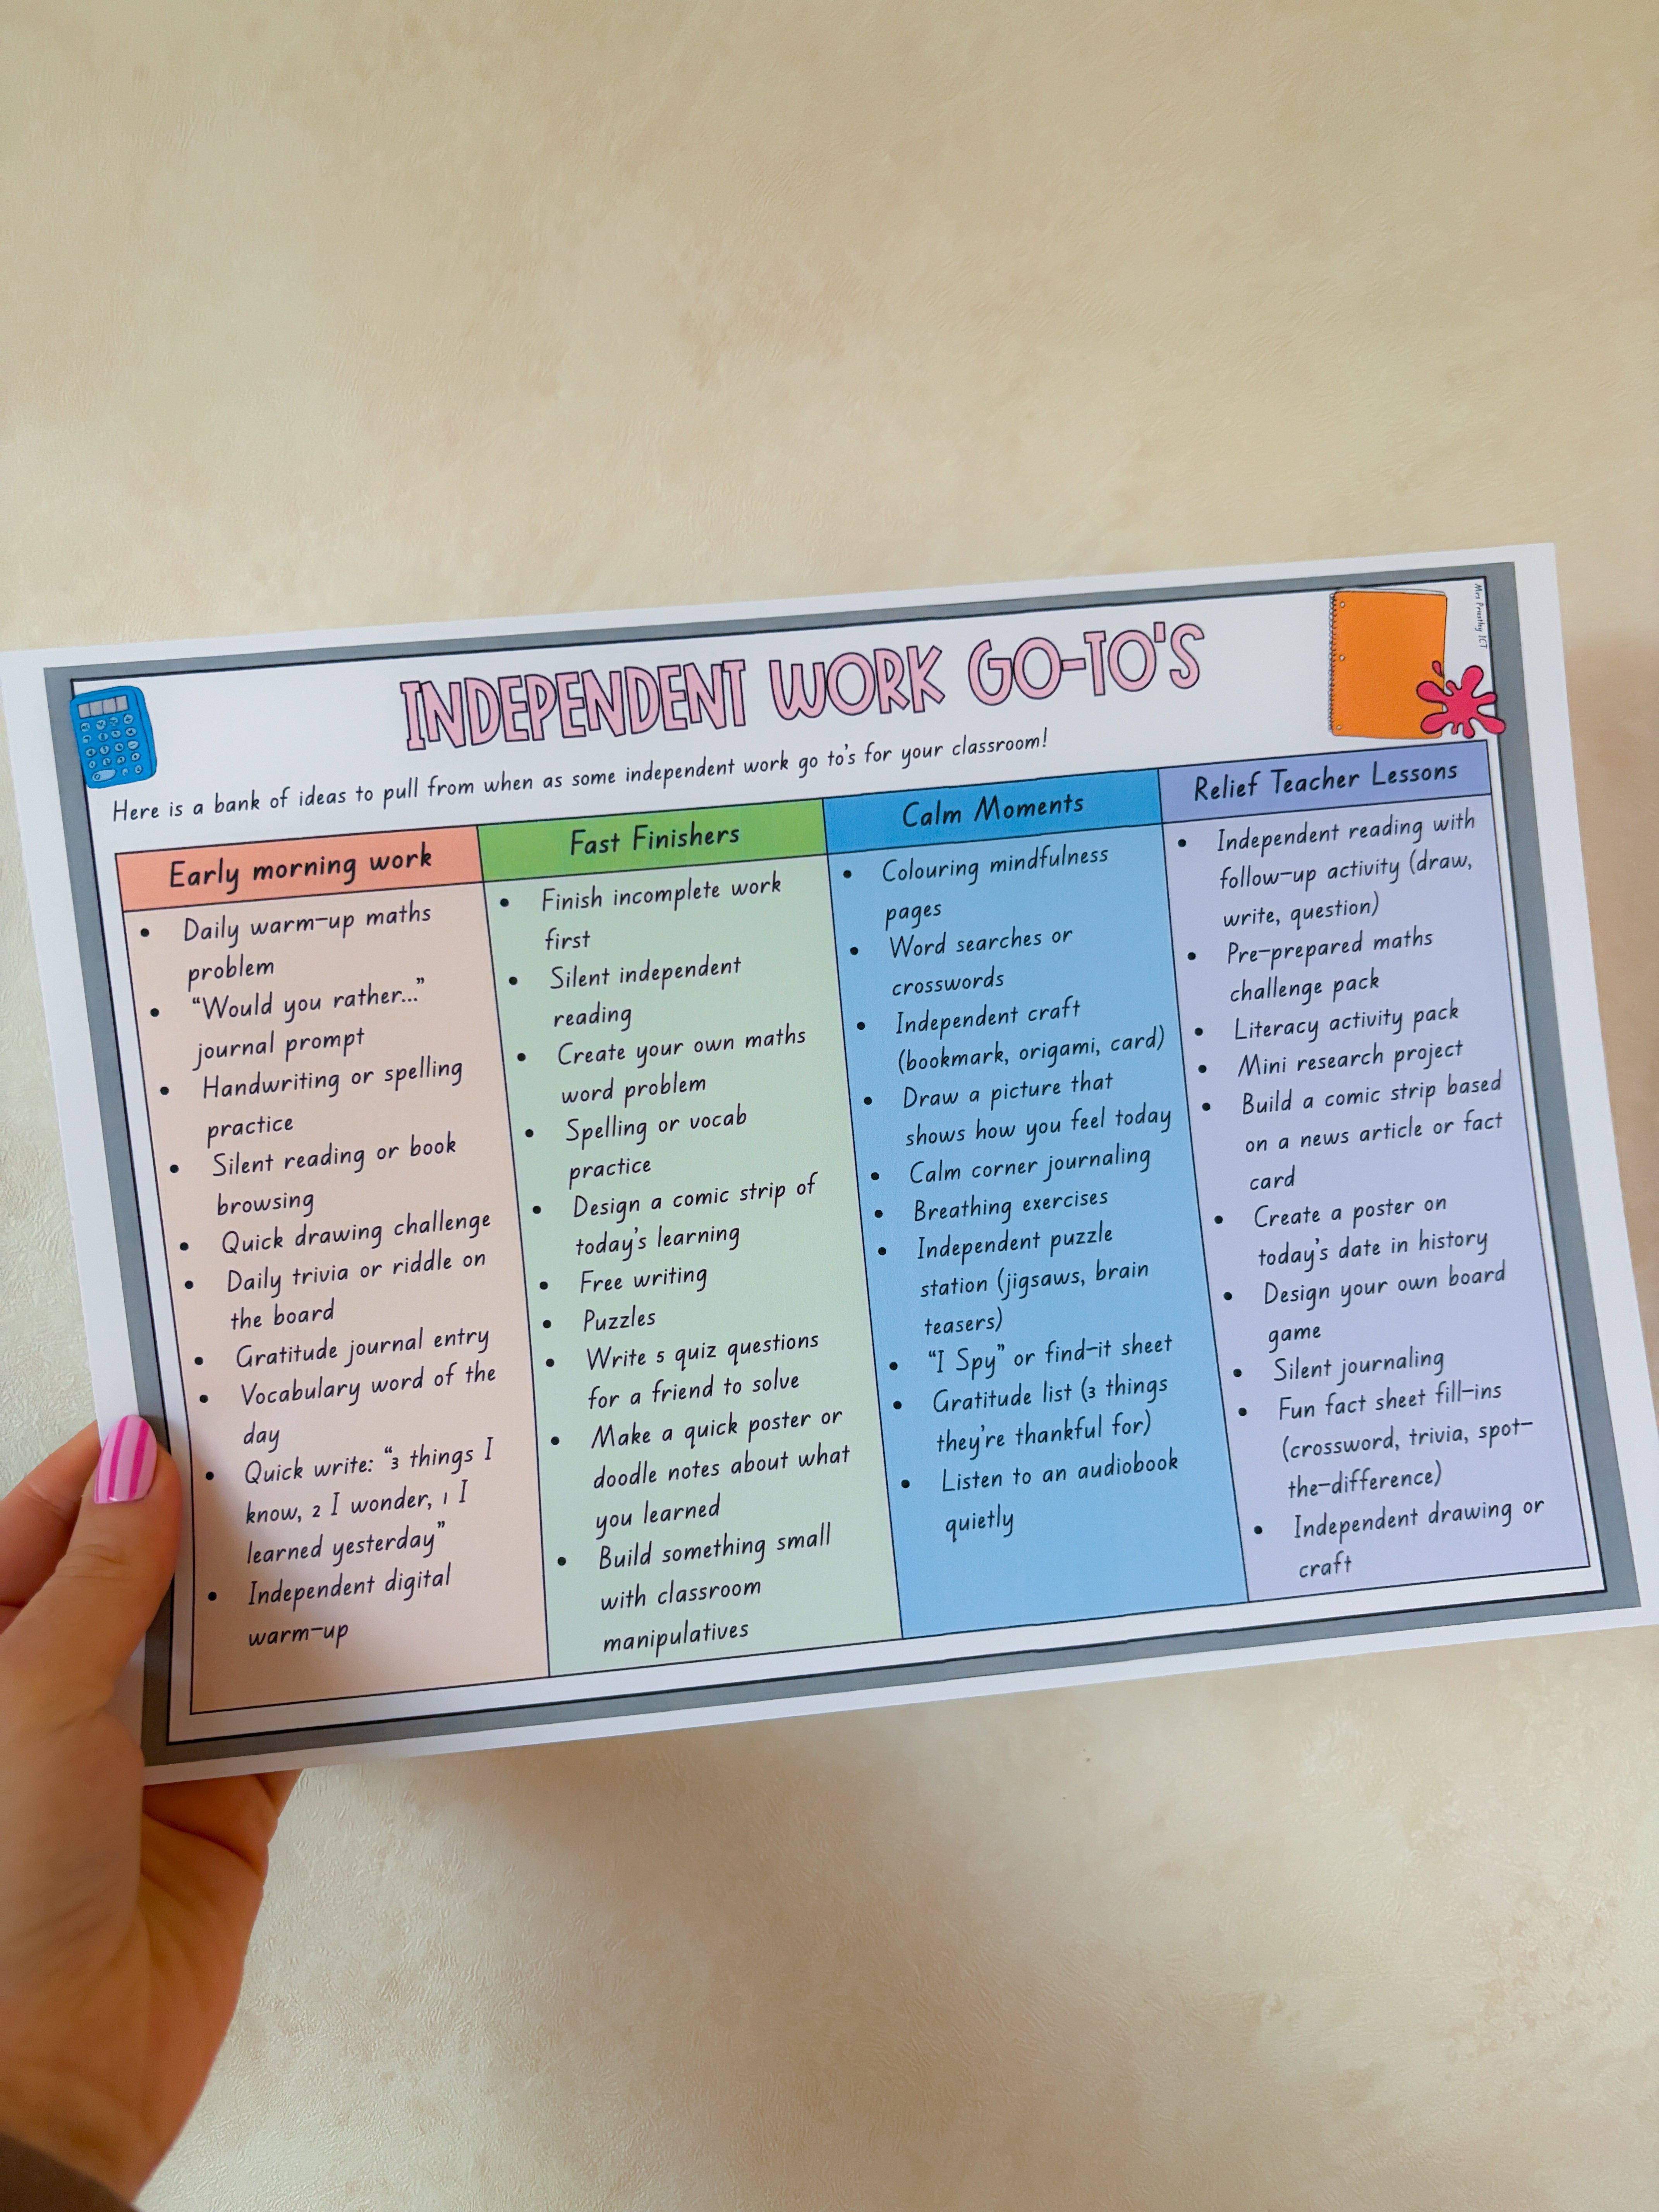 INDEPENDENT WORK GO-TO'S
Here is a bank of ideas to pull from when as some independent work go to's for your classroom!
Early morning work
• Daily warm-up maths
problem
• "Would you rather..."
journal prompt
• Handwriting or spelling
practice
• Silent reading or book
browsing
• Quick drawing challenge
• Daily trivia or riddle on
the board
• Gratitude journal entry
• Vocabulary word of the
day
• Quick write: "3 things I
know, 2 I wonder, 1 I
learned yesterday"
• Independent digital
warm-up
Fast Finishers
• Finish incomplete work
first
• Silent independent
reading
• Create your own maths
word problem
• Spelling or vocab
practice
• Design a comic strip of
today's learning
• Free writing
• Puzzles
• Write 5 quiz questions
for a friend to solve
• Make a quick poster or
doodle notes about what
you learned
• Build something small
with classroom
manipulatives
Calm Moments
• Colouring mindfulness
pages
• Word searches or
crosswords
• Independent craft
(bookmark, origami, card)
• Draw a picture that
shows how you feel today
• Calm corner journaling
• Breathing exercises
• Independent puzzle
station (jigsaws, brain
teasers)
• "I Spy" or find-it sheet
• Gratitude list (3 things
they're thankful for)
• Listen to an audiobook
quietly
Relief Teacher Lessons
• Independent reading with
follow-up activity (draw,
write, question)
• Pre-prepared maths
challenge pack
• Literacy activity pack
• Mini research project
• Build a comic strip based
on a news article or fact
card
• Create a poster on
today's date in history
• Design your own board
game
• Silent journaling
• Fun fact sheet fill-ins
(crossword, trivia, spot-
the-difference)
• Independent drawing or
craft